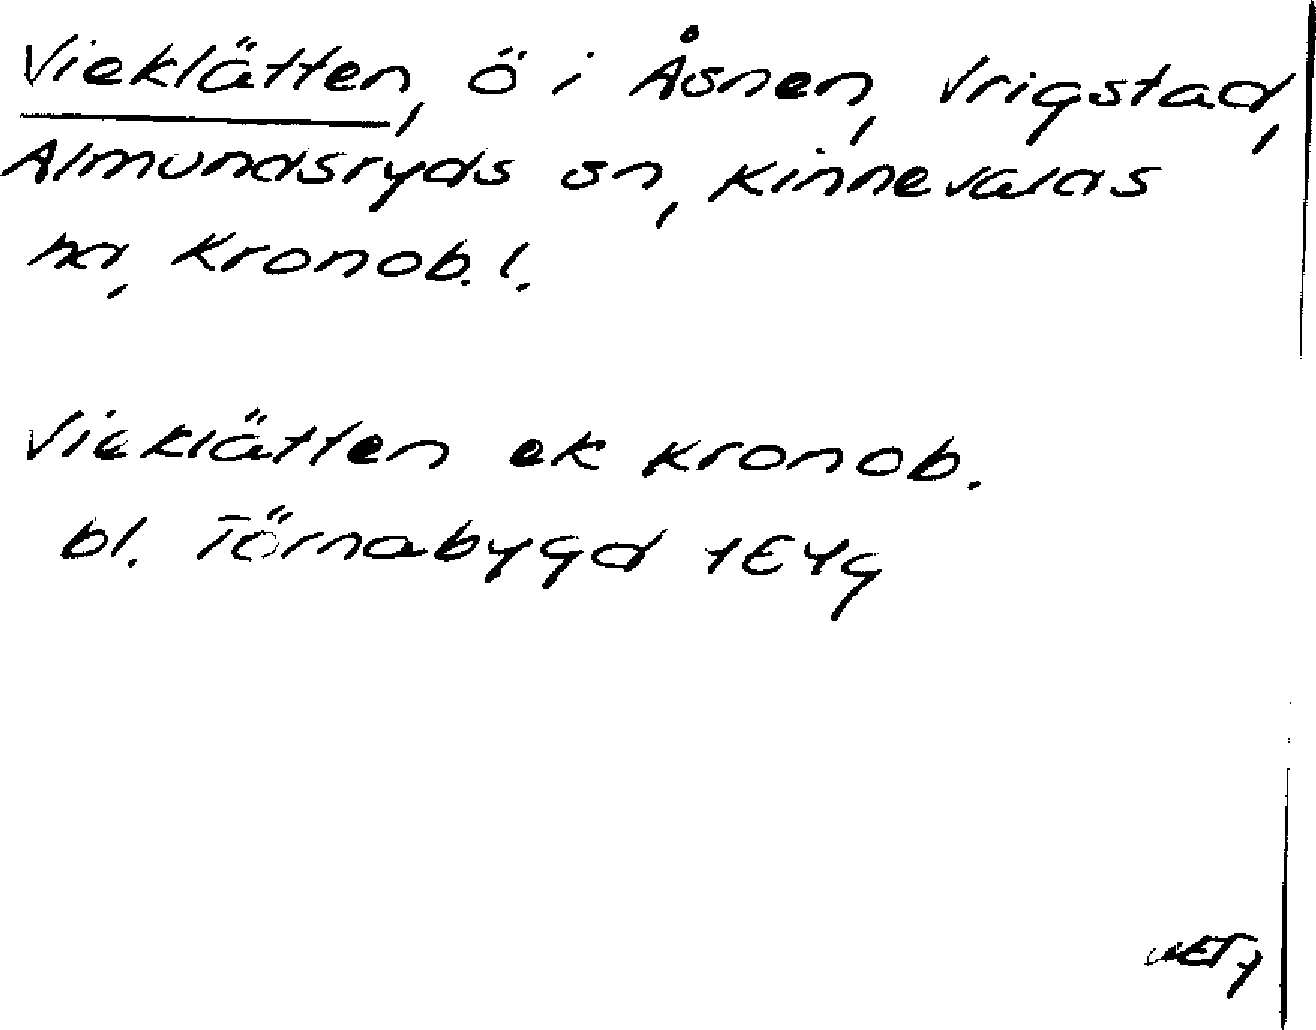 Vieklätten, ö i Åsnen, Vrigstad,
Almundsryds sn, Kinnevalds
hd, Kronob. l.
Vieklätten ek Kronob.
bl. Törnabygd 1E4g